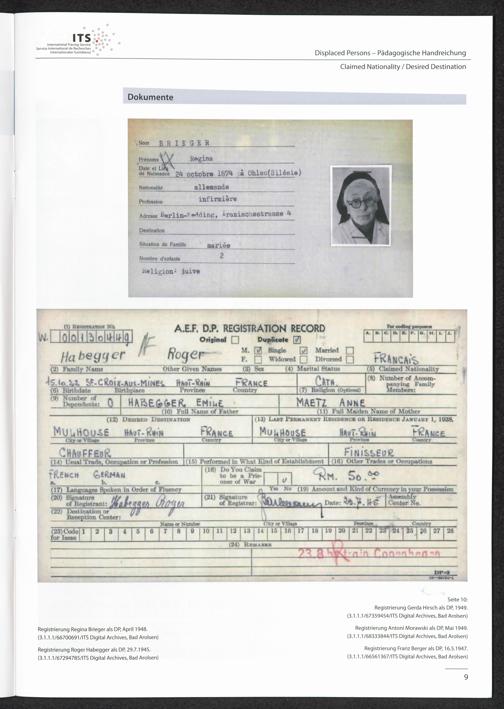 ITS
International Tracing Service
Service International de Recherches
Internationaler Suchdienst
Displaced Persons – Pädagogische Handreichung
Claimed Nationality / Desired Destination
Dokumente
Nom BRIEGER
Prénoms Regina
Date et Lieu
de Naissance 24 octobre 1874 à Ohlau(Silésie)
Nationalité allemande
Profession infirmière
Adresse Berlin-Wedding, Iranischestrasse 4
Destination
Situation de Famille mariée
Nombre d'enfants 2
Religion: juive
(1) REGISTRATION NO.
A.E.F. D.P. REGISTRATION RECORD
For coding purposes
A. B. C. D. E. F. G. H. I. J.
Original Duplicate
W. 00130440
M. Single Married
F. Widowed Divorced
Habegger Roger FRANCAIS
(2) Family Name Other Given Names (3) Sex (4) Marital Status (5) Claimed Nationality
15.10.22 ST-CROIX-AUX-MINES HAUT-RHIN FRANCE CATH.
(6) Birthdate Birthplace Province Country (7) Religion (Optional)
(8) Number of Accompanying Family Members:
(9) Number of Dependents: 0 HABEGGER, EMILE MAETZ ANNE
(10) Full Name of Father (11) Full Maiden Name of Mother
(12) DESIRED DESTINATION (13) LAST PERMANENT RESIDENCE OR RESIDENCE JANUARY 1, 1938.
MULHOUSE HAUT-RHIN FRANCE MULHOUSE HAUT-RHIN FRANCE
City or Village Province Country City or Village Province Country
CHAUFFEUR FINISSEUR
(14) Usual Trade, Occupation or Profession (15) Performed in What Kind of Establishment (16) Other Trades or Occupations
FRENCH GERMAN RM. 50.00
a. b. c.
(18) Do You Claim to be a Prisoner of War
Yes No
(17) Languages Spoken in Order of Fluency (19) Amount and Kind of Currency in your Possession
(20) Signature of Registrant: Habegger Roger (21) Signature of Registrar: Date: 29.7.45 Assembly Center No.
(22) Destination or Reception Center:
Name or Number City or Village Province Country
(23) Code for Issue 1 2 3 4 5 6 7 8 9 10 11 12 13 14 15 16 17 18 19 20 21 22 23 24 25 26 27 28
(24) REMARKS
DP-2
Seite 10:
Registrierung Gerda Hirsch als DP, 1949.
(3.1.1.1/67359454/ITS Digital Archives, Bad Arolsen)
Registrierung Regina Brieger als DP, April 1948.
(3.1.1.1/66700691/ITS Digital Archives, Bad Arolsen)
Registrierung Antoni Morawski als DP, Mai 1949.
(3.1.1.1/68333844/ITS Digital Archives, Bad Arolsen)
Registrierung Roger Habegger als DP, 29.7.1945.
(3.1.1.1/67294785/ITS Digital Archives, Bad Arolsen)
Registrierung Franz Berger als DP, 16.5.1947.
(3.1.1.1/66561367/ITS Digital Archives, Bad Arolsen)
9